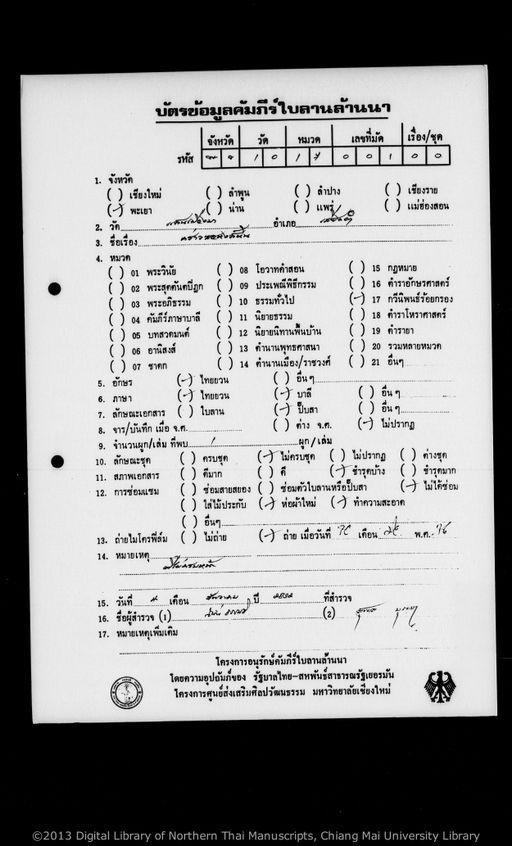 บัตรข้อมูลคัมภีร์ใบลานล้านนา
จังหวัด วัด หมวด เลขที่มัด เรื่อง/ชุด
รหัส 1 0 1 7 0 0 1 0 0
1. จังหวัด
( ) เชียงใหม่ ( ) ลำพูน ( ) ลำปาง ( ) เชียงราย
(-) พะเยา ( ) น่าน ( ) แพร่ ( ) แม่ฮ่องสอน
2. วัด อำเภอ
3. ชื่อเรื่อง
4. หมวด
( ) 01 พระวินัย ( ) 08 โอวาทคำสอน ( ) 15 กฎหมาย
( ) 02 พระสุตตันตปิฎก ( ) 09 ประเพณีพิธีกรรม ( ) 16 ตำราอักษรศาสตร์
( ) 03 พระอภิธรรม ( ) 10 ธรรมทั่วไป (-) 17 กวีนิพนธ์ร้อยกรอง
( ) 04 คัมภีร์ภาษาบาลี ( ) 11 นิยายธรรม ( ) 18 ตำราโหราศาสตร์
( ) 05 บทสวดมนต์ ( ) 12 นิยายนิทานพื้นบ้าน ( ) 19 ตำรายา
( ) 06 อานิสงส์ ( ) 13 ตำนานพุทธศาสนา ( ) 20 รวมหลายหมวด
( ) 07 ชาดก ( ) 14 ตำนานเมือง/ราชวงศ์ ( ) 21 อื่นๆ
5. อักษร (-) ไทยยวน ( ) อื่นๆ
6. ภาษา (-) ไทยยวน (-) บาลี ( ) อื่นๆ
7. ลักษณะเอกสาร ( ) ใบลาน (-) ปั๊บสา ( ) อื่นๆ
8. จาร/บันทึก เมื่อ จ.ศ. ( ) ต่าง จ.ศ. (-) ไม่ปรากฏ
9. จำนวนผูก/เล่ม ที่พบ 1 ผูก/เล่ม
10. ลักษณะชุด ( ) ครบชุด (-) ไม่ครบชุด ( ) ไม่ปรากฏ ( ) ต่างชุด
11. สภาพเอกสาร ( ) ดีมาก ( ) ดี (-) ชำรุดบ้าง ( ) ชำรุดมาก
12. การซ่อมแซม ( ) ซ่อมสายสยอง ( ) ซ่อมตัวใบลานหรือปั๊บสา (-) ไม่ได้ซ่อม
( ) ใส่ไม้ประกับ (-) ห่อผ้าใหม่ (-) ทำความสะอาด
( ) อื่นๆ
13. ถ่ายไมโครฟิล์ม ( ) ไม่ถ่าย (-) ถ่าย เมื่อวันที่ เดือน พ.ศ.
14. หมายเหตุ
15. วันที่ เดือน ปี ที่สำรวจ
16. ชื่อผู้สำรวจ (1) (2)
17. หมายเหตุเพิ่มเติม
โครงการอนุรักษ์คัมภีร์ใบลานล้านนา
โดยความอุปถัมภ์ของ รัฐบาลไทย-สหพันธ์สาธารณรัฐเยอรมัน
โครงการศูนย์ส่งเสริมศิลปวัฒนธรรม มหาวิทยาลัยเชียงใหม่
©2013 Digital Library of Northern Thai Manuscripts, Chiang Mai University Library